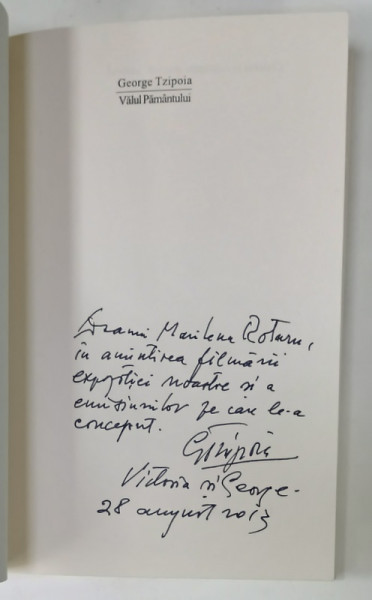 George Tzipoia
Vălul Pământului
Doamnei Marilena Rotaru,
în amintirea filmării
expoziției noastre și a
emisiunilor pe care le-a
conceput.
GTzipoia
Victoria și George-
28 august 2013